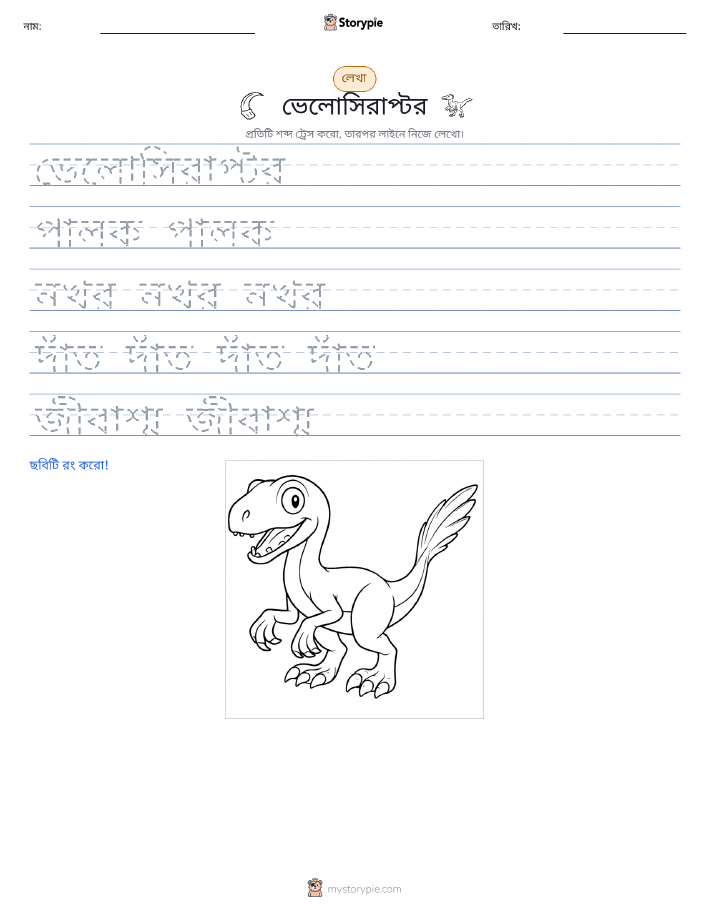 নাম:
Storypie
তারিখ:
লেখা
ভেলোসিরাপ্টর
প্রতিটি শব্দ ট্রেস করো, তারপর লাইনে নিজে লেখো।
ভেলোসিরাপ্টর
পালক পালক
নখর নখর নখর
দাঁত দাঁত দাঁত দাঁত
জীবাশ্ম জীবাশ্ম
ছবিটি রং করো!
mystorypie.com